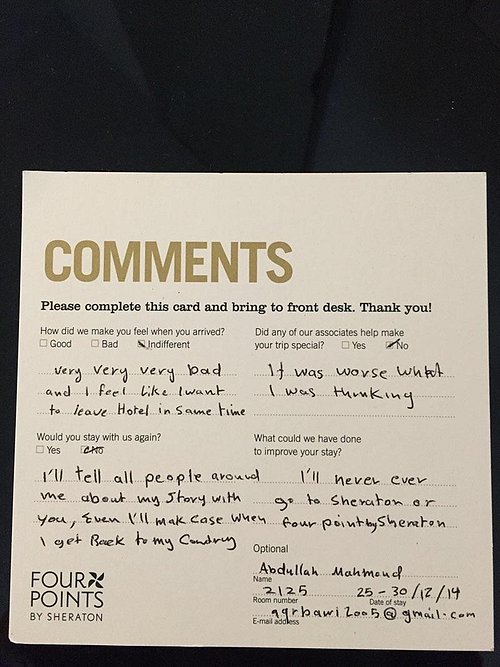 COMMENTS
Please complete this card and bring to front desk. Thank you!
How did we make you feel when you arrived?
Good Bad Indifferent
very very very bad
and I feel like I want
to leave Hotel in same time
Did any of our associates help make
your trip special? Yes No
It was worse what
I was thinking
Would you stay with us again?
Yes No
I'll tell all people around
me about my story with
you, Even I'll mak case when
I get Back to my Condruy
What could we have done
to improve your stay?
I'll never ever
go to Sheraton or
four point by Sheraton
Optional
Abdullah Mahmoud
Name
2125 25-30/12/14
Room number Date of stay
aqrbawi2005@gmail.com
E-mail address
FOUR
POINTS
BY SHERATON